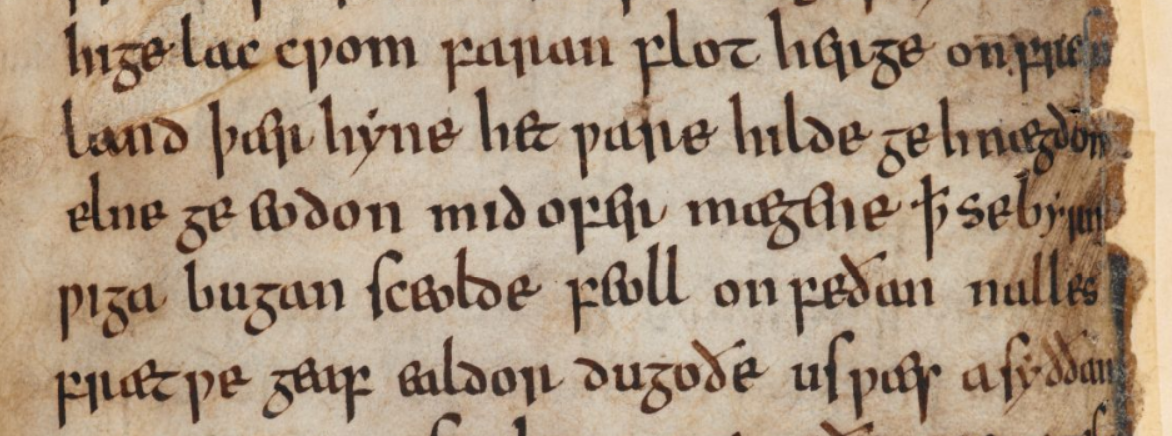 hige lac cƿom faran flot herge on fres
land þær hyne het ƿare hilde ge hnægdon
elne ge eodon mid ofer mægene ꝥ se byrn
ƿiga bugan sceolde feoll on feðan nalles
frætƿe geaf ealdor dugoðe us ƿæs a syððan